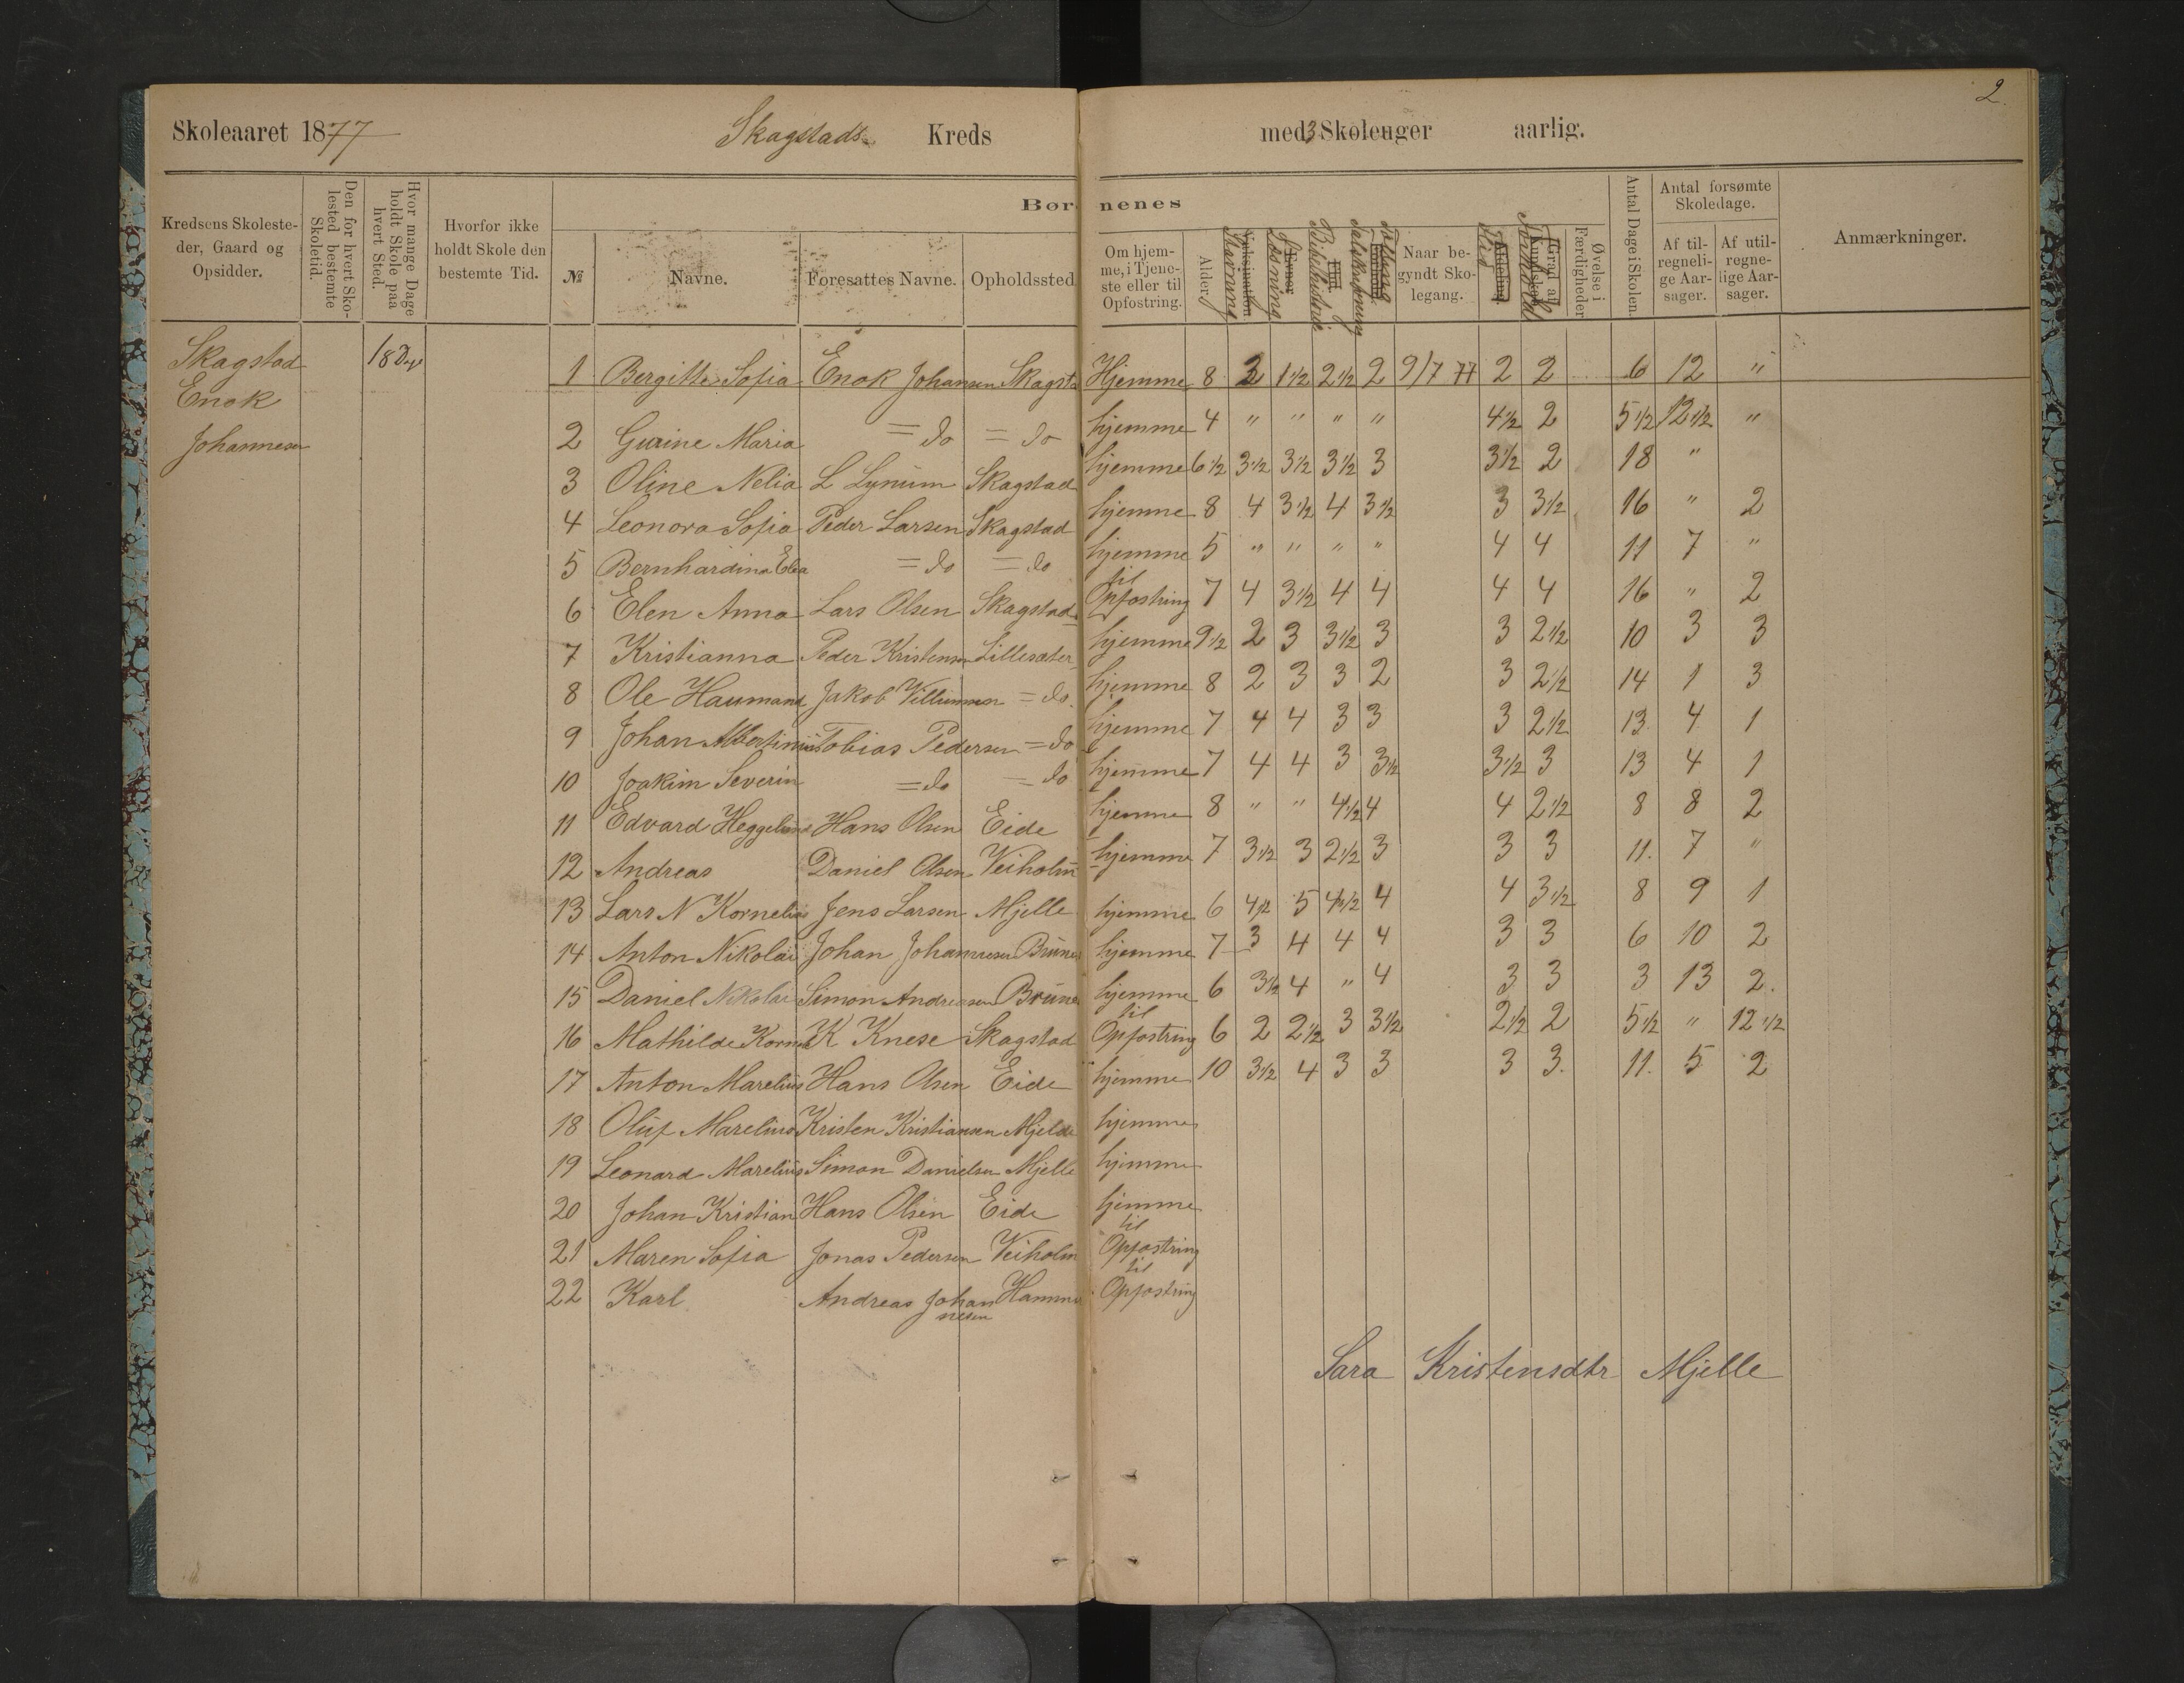 2.
Skoleaaret 1877 Skagstads Kreds med 3 Skoleuger aarlig.
Kredsens Skolesteder, Gaard og Opsidder.
Den for hvert Skolested bestemte Skoletid.
Hvor mange Dage holdt Skole paa hvert Sted.
Hvorfor ikke holdt Skole den bestemte Tid.
Børnenes
№
Navne.
Foresattes Navne.
Opholdssted
Om hjemme, i Tjeneste eller til Opfostring.
Alder.
Vaksination
Læsning
Evner
Bibelhistorie
Flid
Naar begyndt Skolegang.
Flid
Afdeling.
Forhold
Grad af Kundskab
Øvelse i Færdigheder
Antal Dage i Skolen.
Antal forsømte Skoledage.
Af tilregnelige Aarsager.
Af utilregnelige Aarsager.
Anmærkninger.
Skagstad 18 Dage
Enok
Johannesen
1 Bergitte Sofia Enok Johansen Skagsta Hjemme 8 2 1 1/2 2 1/2 2 9/7 77 2 2 6 12 "
2 Maria = do = do hjemme 4 " " " " 4 1/2 2 5 1/2 12 1/2 "
3 Oline Nelia L Lynum Skagstad hjemme 6 1/2 3 1/2 3 1/2 3 1/2 3 3 1/2 2 18 "
4 Leonora Sofia Peder Larsen Skagstad hjemme 8 4 3 1/2 4 3 1/2 3 3 1/2 16 " 2
5 Bernhardina Elea = do = do hjemme 5 " " " " 4 4 11 7 "
6 Elen Anna Lars Olsen Skagstad til Opfostring 7 4 3 1/2 4 4 4 4 16 " 2
7 Kristianna Peder Kristensen Lillesæter hjemme 9 1/2 2 3 3 1/2 3 3 2 1/2 10 3 3
8 Ole Haumann Jakob Villumsen = do. hjemme 8 2 3 3 2 3 2 1/2 14 1 3
9 Johan Albertinius Tobias Pedersen = do hjemme 7 4 4 3 3 3 2 1/2 13 4 1
10 Joakim Severin = do = do hjemme 7 4 4 3 3 1/2 3 1/2 3 13 4 1
11 Edvard Heggelund Hans Olsen Eide hjemme 8 " " 4 1/2 4 4 2 1/2 8 8 2
12 Andreas Daniel Olsen Veiholm hjemme 7 3 1/2 3 2 1/2 3 3 3 11. 7 "
13 Lars N Kornelius Jens Larsen Mjelle hjemme 6 4 1/2 5 4 1/2 4 4 3 1/2 8 9 1
14 Anton Nikolai Johan Johannesen Brune hjemme 7 3 4 4 4 3 3 6 10 2
15 Daniel Nikolai Simon Andreasen Brune hjemme 6 3 1/2 4 " 4 3 3 3 13 2.
16 Mathilde Korne K Knese Skagstad til Opfostring 6 2 2 1/2 3 3 1/2 2 1/2 2 5 1/2 " 12 1/2
17 Anton Marelius Hans Olsen Eide hjemme 10 3 1/2 4 3 3 3 3. 11. 5 2
18 Oluf Marelius Kristen Kristiansen Mjelde hjemme
19 Leonard Marelius Simon Danielsen Mjelle hjemme
20 Johan Kristian Hans Olsen Eide hjemme
21 Maren Sofia Jonas Pedersen Veiholm til Opfostring
22 Karl Andreas Johannesen Hammer til Opfostring
Sara Kristensdtr Mjelle